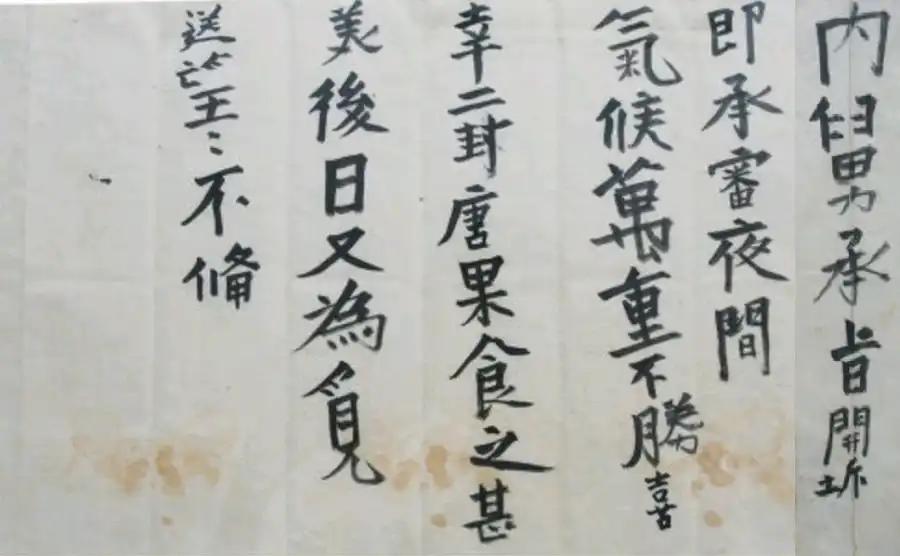 內舅承旨開坼
即承審夜間
氣候萬重不勝喜
幸二封唐果食之甚
美後日又為覓
送望〻不備